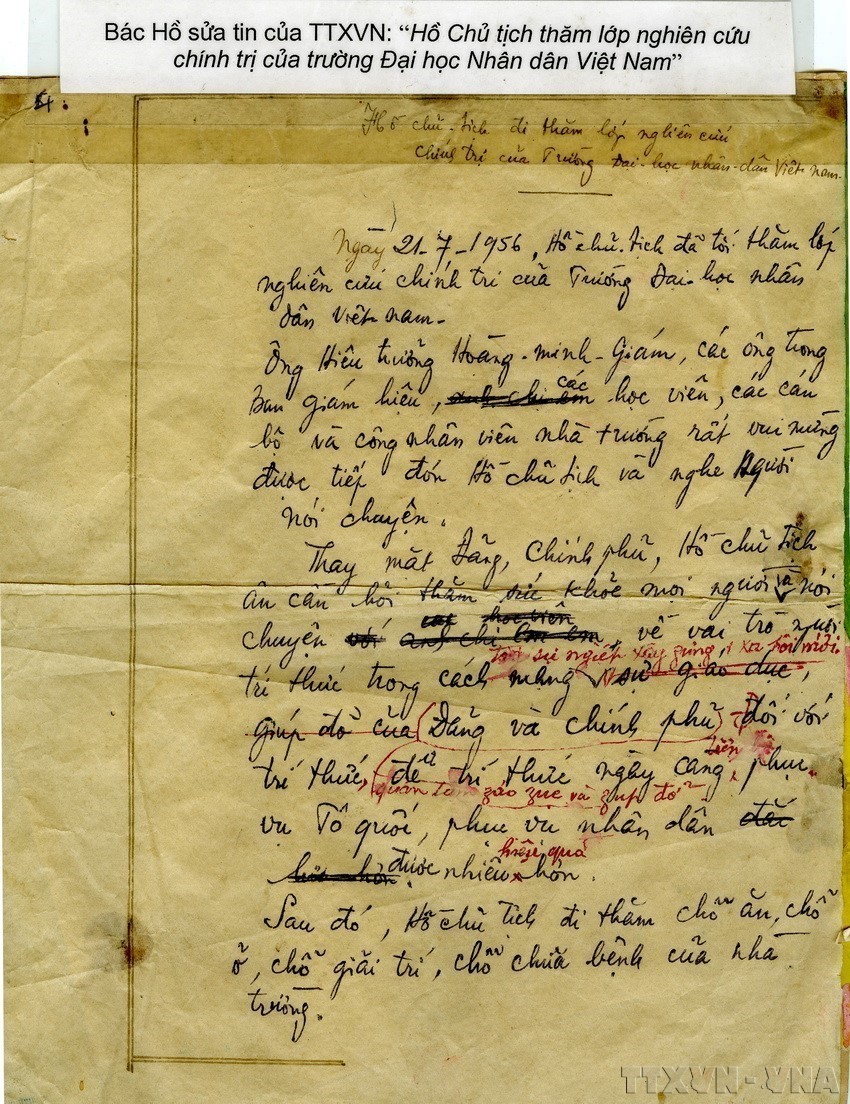 Bác Hồ sửa tin của TTXVN: “Hồ Chủ tịch thăm lớp nghiên cứu
chính trị của trường Đại học Nhân dân Việt Nam”
Hồ chủ-tịch đi thăm lớp nghiên cứu
chính trị của Trường Đại-học nhân-dân Việt-nam-
Ngày 21-7-1956, Hồ chủ-tịch đã tới thăm lớp
nghiên cứu chính trị của Trường Đại-học nhân
dân Việt-nam-
Ông Hiệu trưởng Hoàng-minh-Giám, các ông trong
các
ban giám hiệu, anh chị em học viên, các cán
bộ và công nhân viên nhà trường rất vui mừng
được tiếp đón Hồ chủ tịch và nghe Người
nói chuyện.
Thay mặt Đảng, Chính phủ, Hồ chủ tịch
ân cần hỏi thăm sức khỏe mọi người và nói
các học viên
chuyện với anh chị em, về vai trò người
sự nghiệp xây zựng xã hội mới
trí thức trong cách mạng, sự giáo dục,
giúp đỡ của (Đảng và chính phủ) đối với
tiến bộ
trí thức, (để trí thức ngày càng phục
quan tâm záo zục và zúp đỡ
vụ Tổ quốc, phục vụ nhân dân đắc
hiệu quả
lực hơn. được nhiều hơn.
Sau đó, Hồ chủ tịch đi thăm chỗ ăn, chỗ
ở, chỗ giải trí, chỗ chữa bệnh của nhà
trường.
TTXVN-VNA